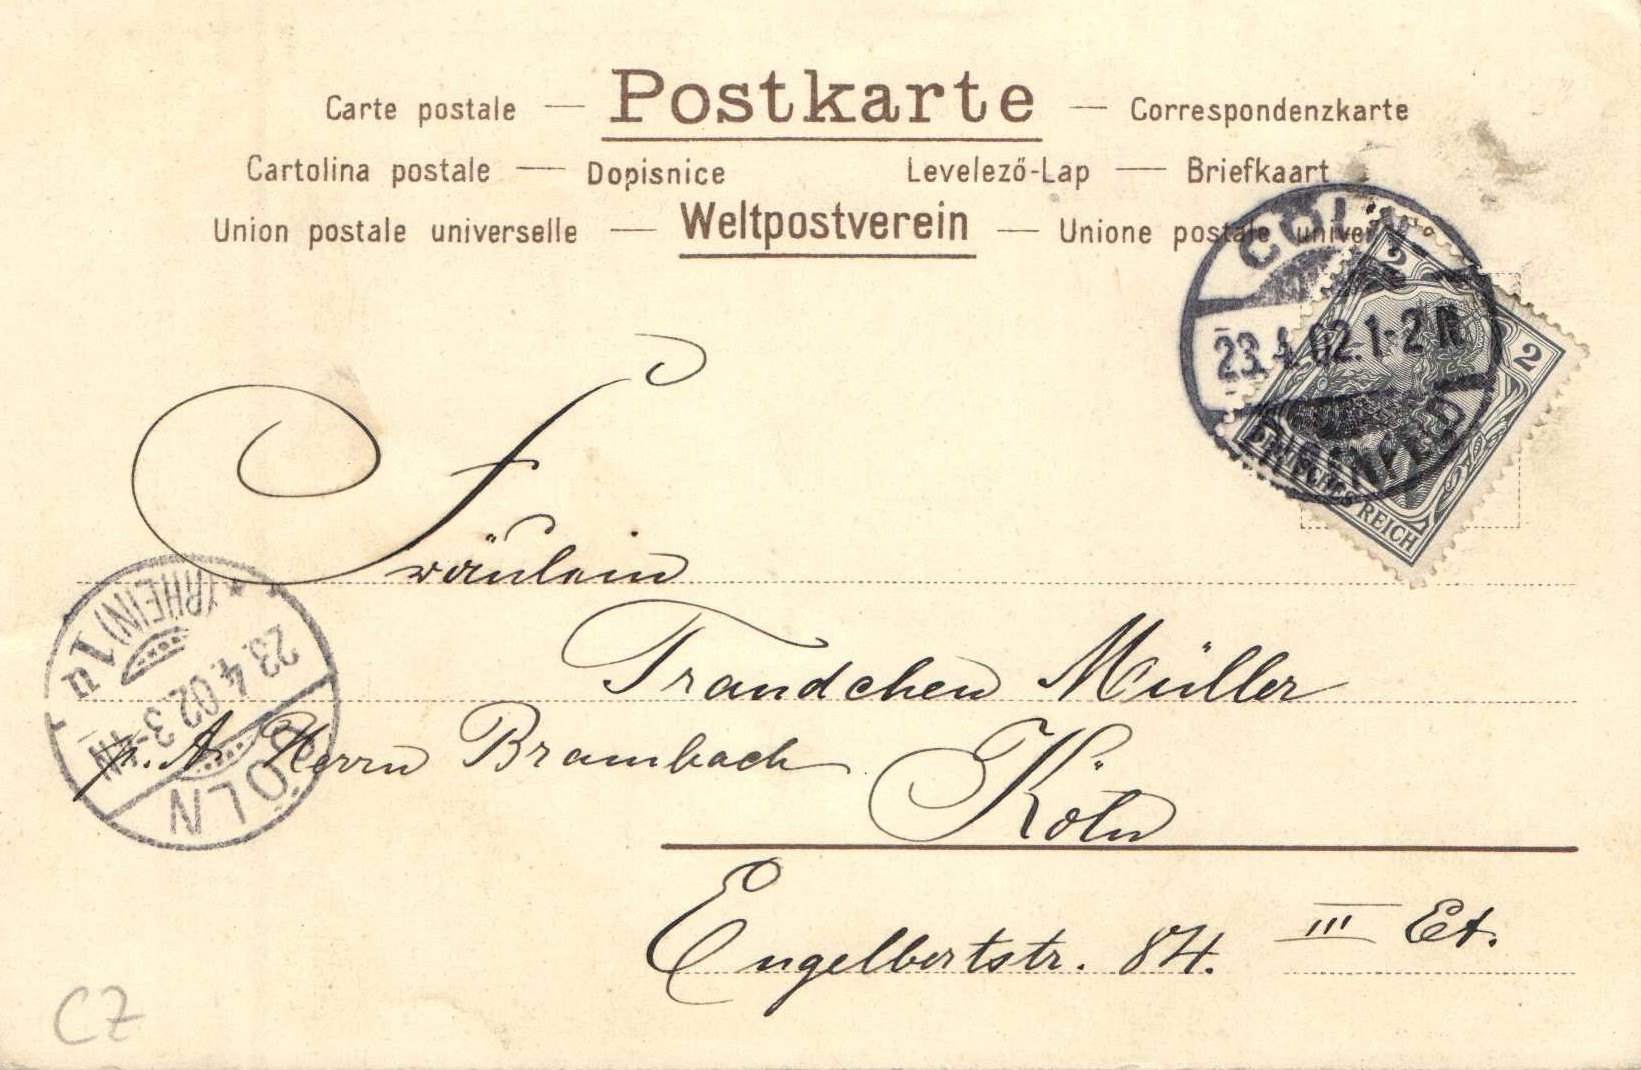 Carte postale — Postkarte — Correspondenzkarte
Cartolina postale — Dopisnice Levelező-Lap — Briefkaart
Union postale universelle — Weltpostverein — Unione postale univer
CÖLN
23.4.02.1-2N
2
2
DEUTSCHES REICH
Fräulein
Traudchen Müller
p. A. Herrn Brambach
Köln
Engelbertstr. 84. III Et.
CÖLN
23.4.02.3-4N
(RHEIN) 1
CZ